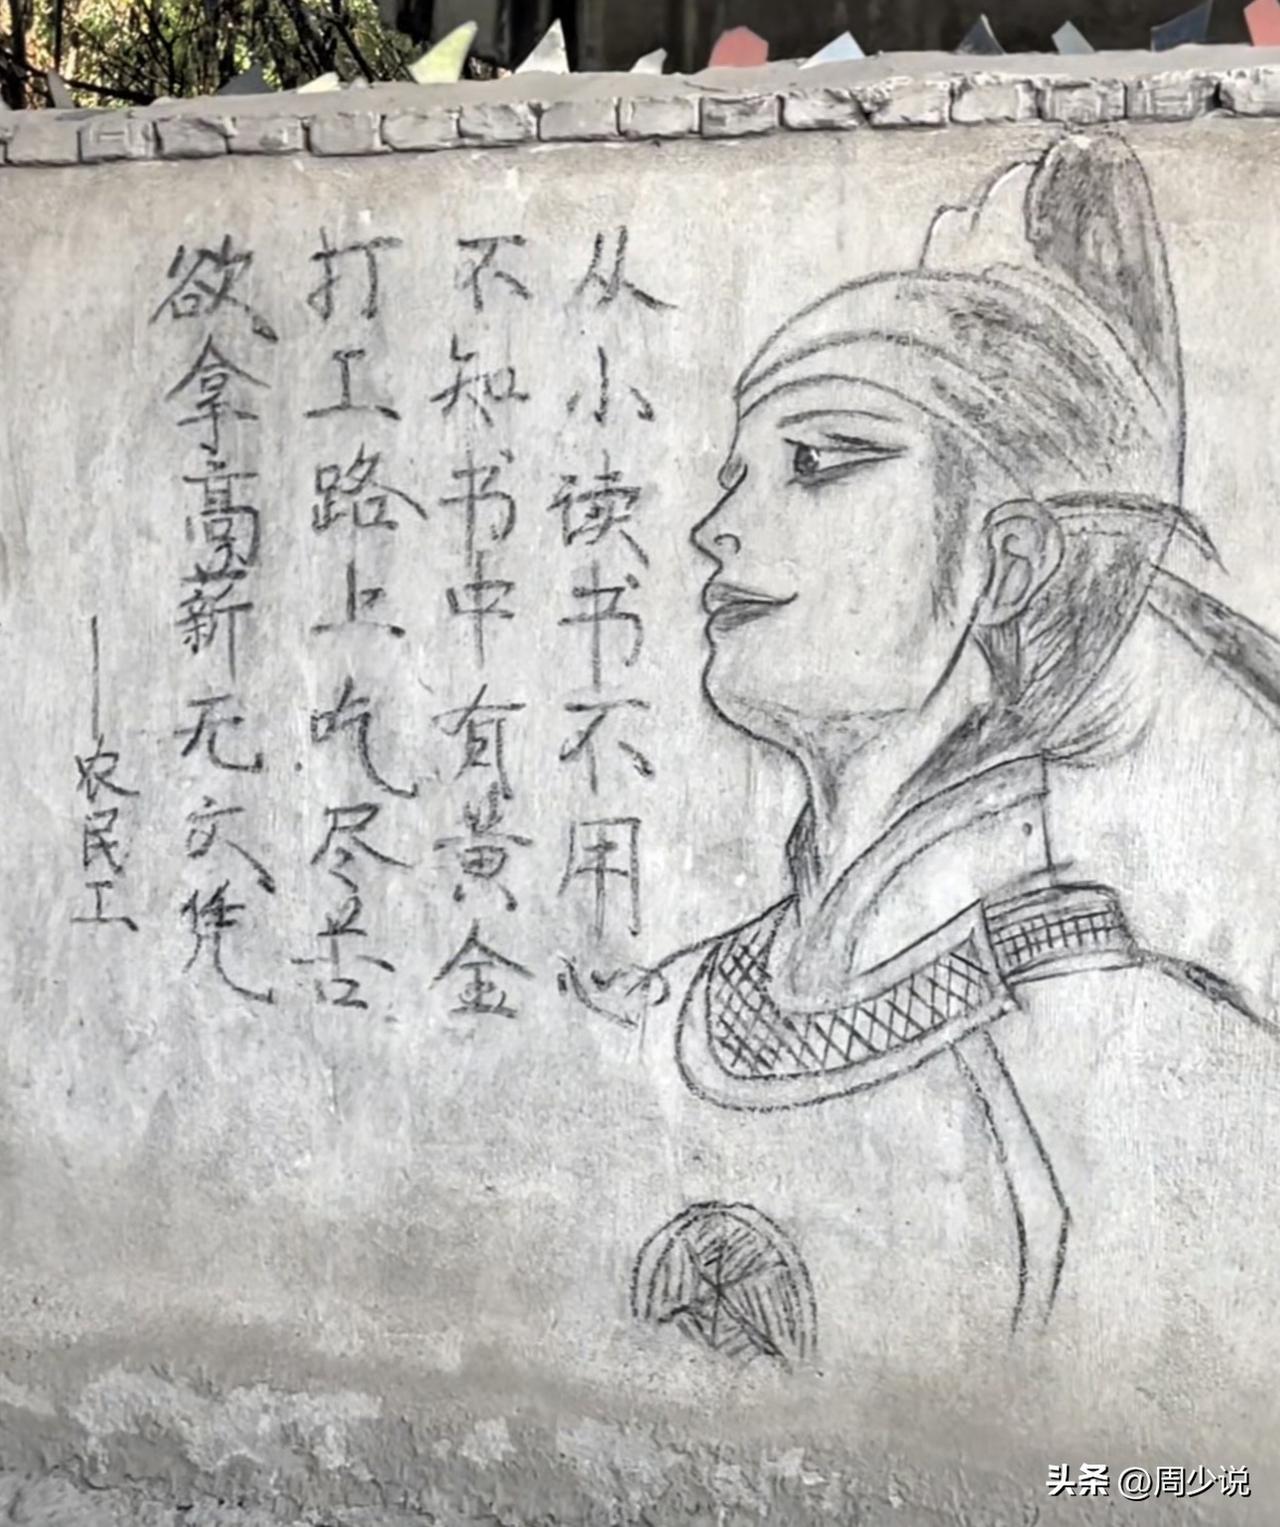 从小读书不用心
不知书中有黄金
打工路上吃尽苦
欲拿高薪无文凭
——农民工
头条 @周少说